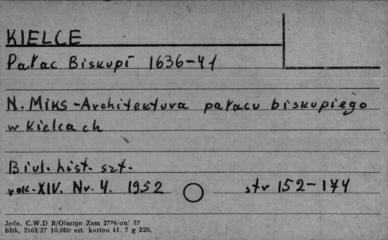 KIELCE
Pałac Biskupi 1636-41
N. Miks - Architektura pałacu biskupiego
w Kielcach
Biul. hist. szt.
rok-XIV. Nr. 4. 1952 str 152-174
Jedn. C.W.D B/Olsztyn Zam 2776/on/ 57
Bltk, 2563/57 10.000 szt. karton kl. 7 g 220.